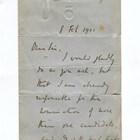 8 Feb 1911
Dear Sir,
I would gladly
do as you ask, but
that I am already
responsible for the
nomination of more
than one candidate